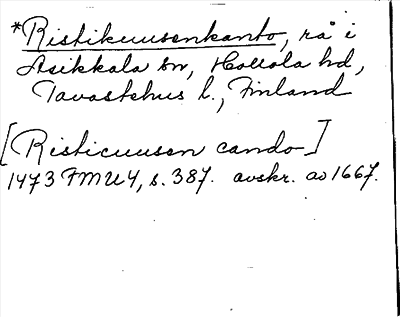 *Ristikuusenkanto, rå i
Asikkala sn, Hollola hd,
Tavastehus l., Finland
[Risticuusen cando]
1473 FMU 4, s. 387. avskr. av 1667.